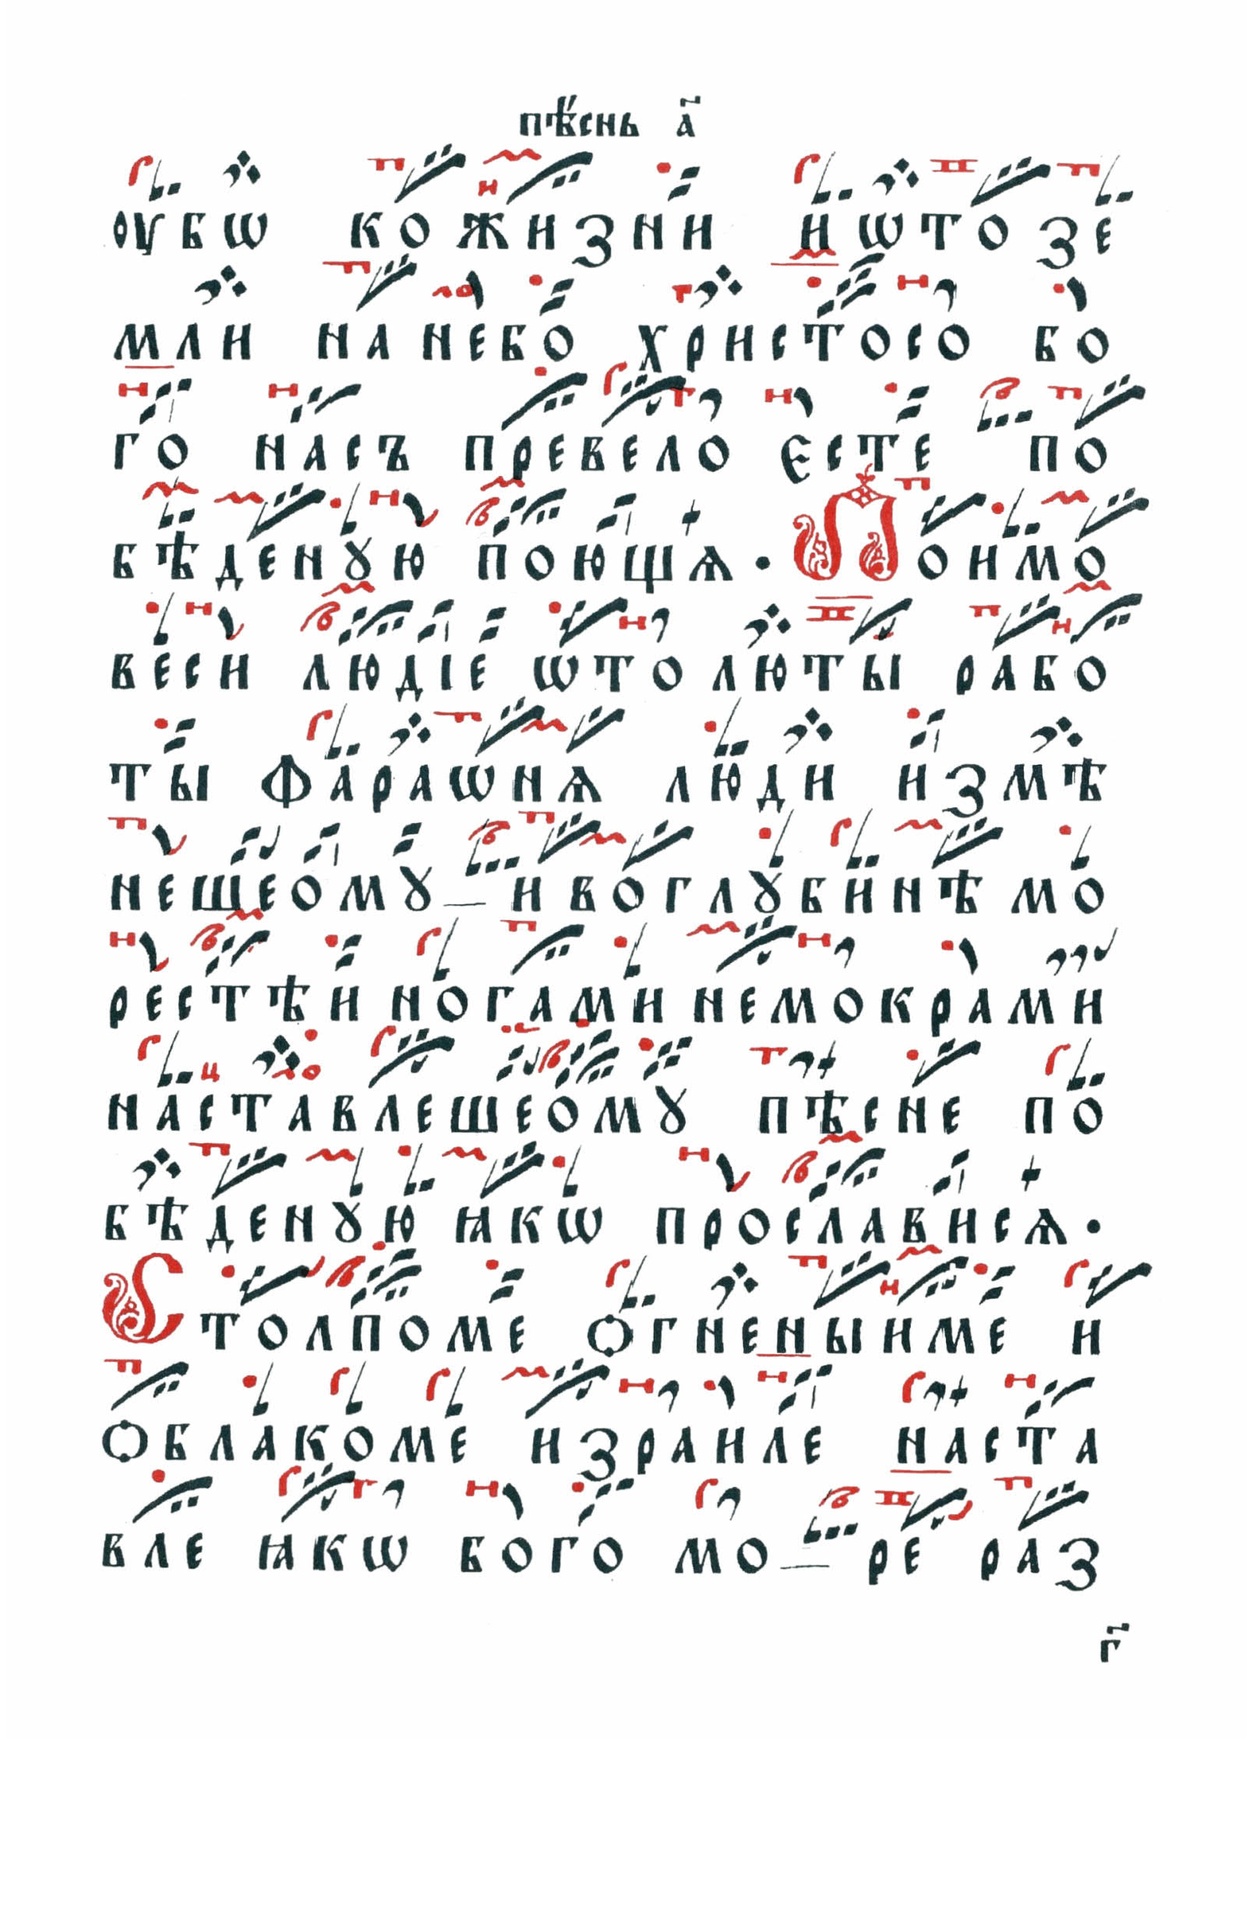 пѣ́снь а҃
ѹбѡ кожизни иѡтозе
мли нанебо христосо бо
го насъ превело єсте по
бѣденꙋю поюща. Поимо
веси людіе ѡтолюты рабо
ты фараѡнѧ люди измѣ
нешеомꙋ ивоглꙋбинѣ мо
рестѣи ногами немокрами
наставлешеомꙋ пѣсне по
бѣденꙋю ꙗкѡ прослависѧ.
Столпоме ѻгненыиме и
ѻблакоме израиле наста
вле ꙗкѡ бого море раз
г҃